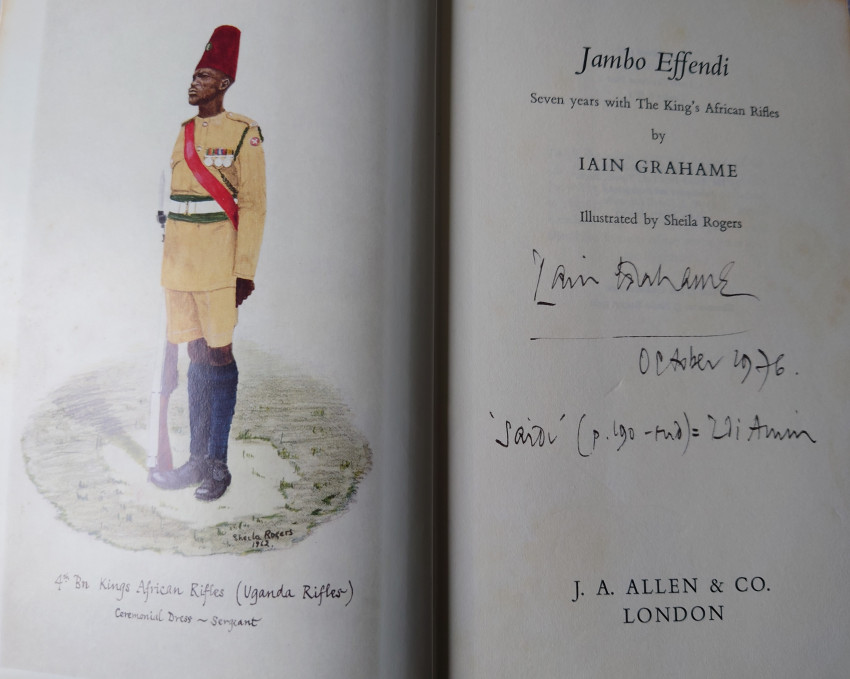 Sheila Rogers
1962.
4th Bn Kings African Rifles (Uganda Rifles)
Ceremonial Dress ~ Sergeant
Jambo Effendi
Seven years with The King's African Rifles
by
IAIN GRAHAME
Illustrated by Sheila Rogers
Iain Grahame
October 1976.
'Saidi' (p. 190 - end) = Idi Amin
J. A. ALLEN & CO.
LONDON